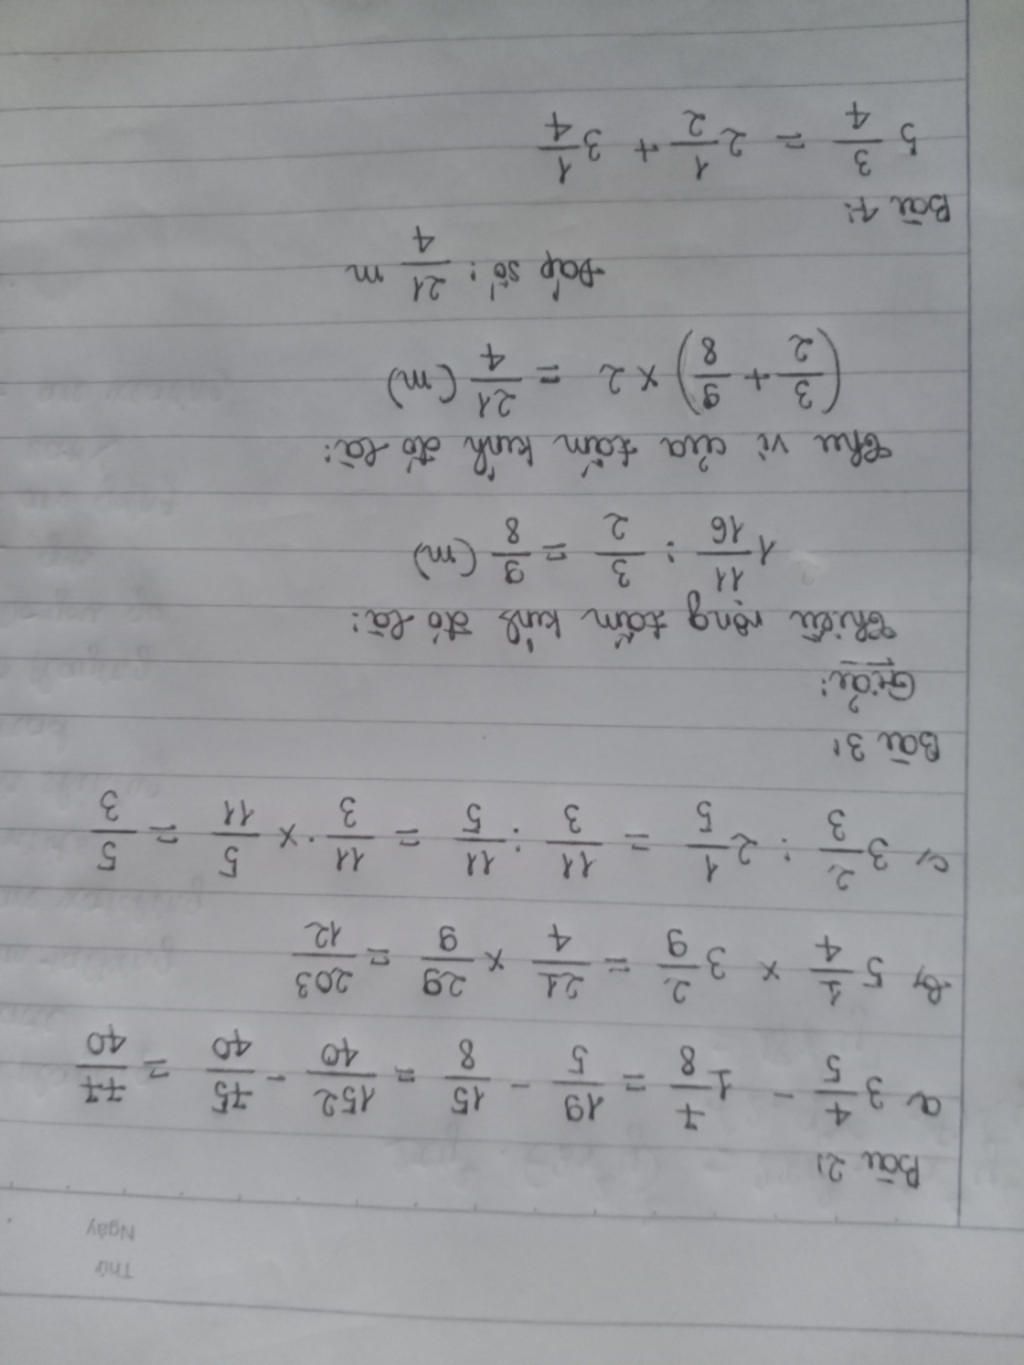 Thứ
Ngày
Bài 2:
a, 3 4/5 - 1 7/8 = 19/5 - 15/8 = 152/40 - 75/40 = 77/40
b, 5 1/4 × 3 2/9 = 21/4 × 29/9 = 203/12
c, 3 2/3 : 2 1/5 = 11/3 : 11/5 = 11/3 × 5/11 = 5/3
Bài 3:
Giải:
Chiều rộng tấm kính đó là:
1 11/16 : 3/2 = 9/8 (m)
Chu vi của tấm kính đó là:
(3/2 + 9/8) × 2 = 21/4 (m)
Đáp số: 21/4 m
Bài 4:
5 3/4 = 2 1/2 + 3 1/4